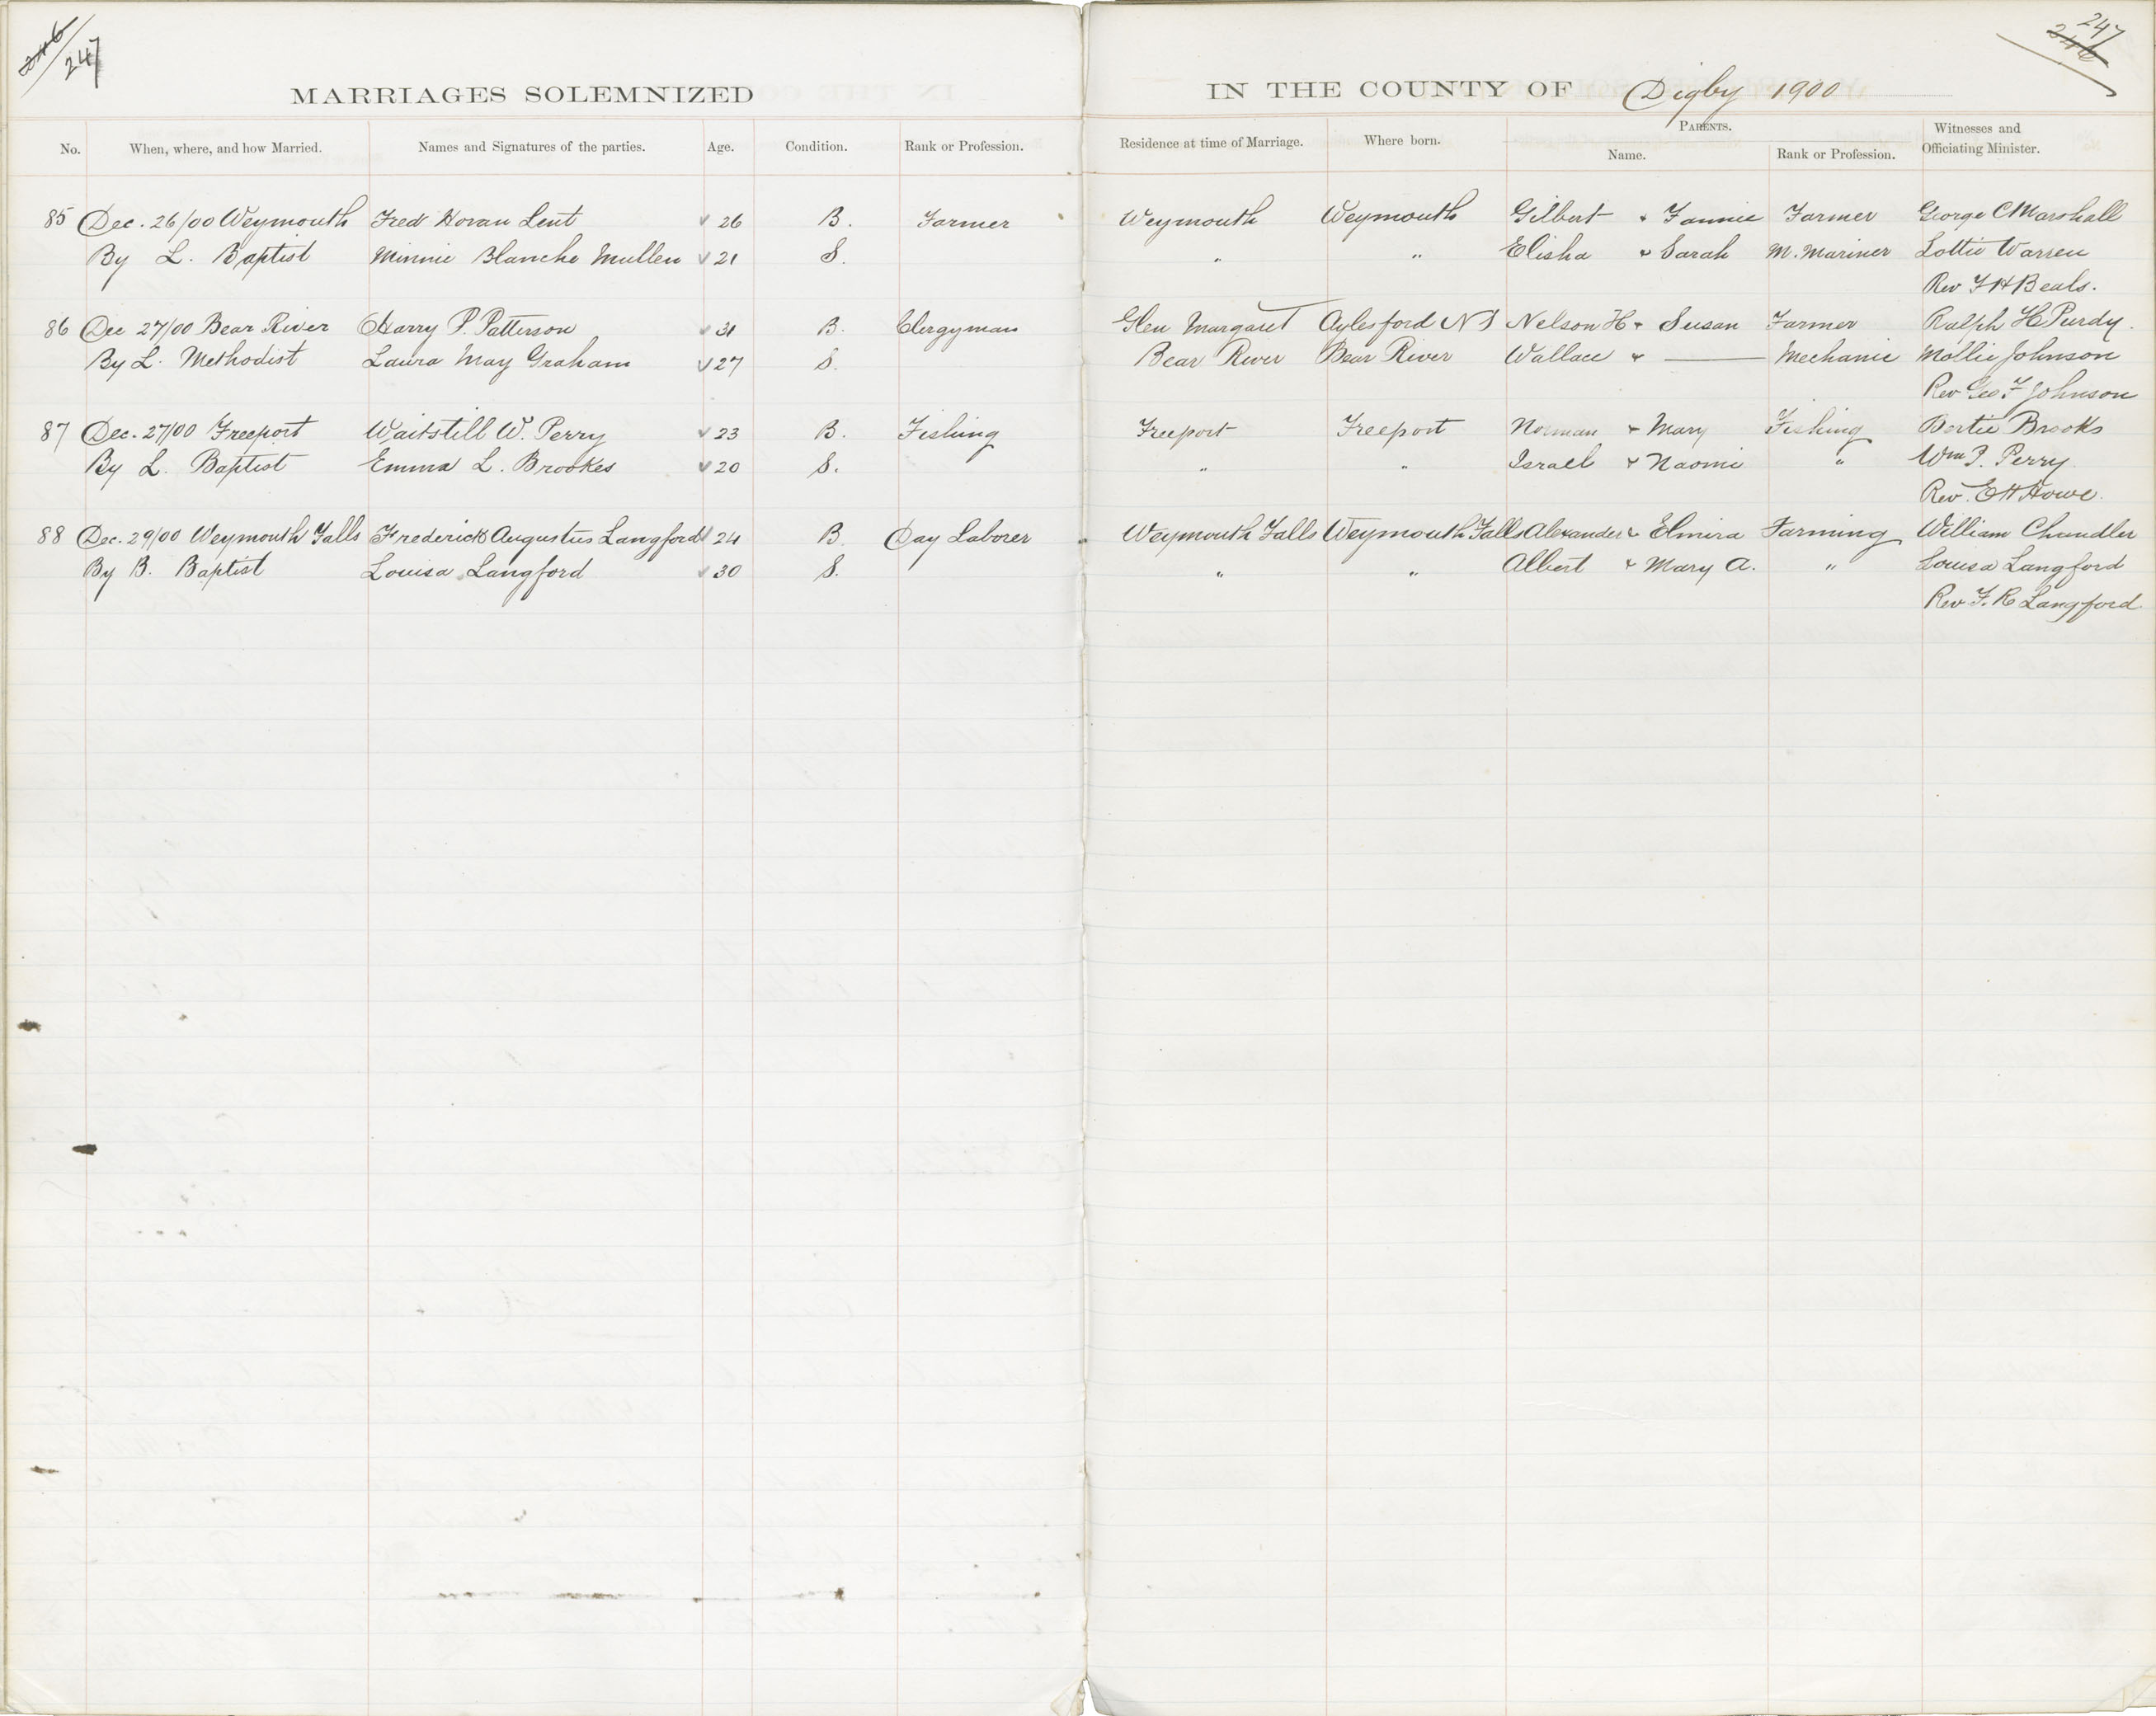 246 247
247 246
MARRIAGES SOLEMNIZED IN THE COUNTY OF Digby 1900
No. When, where, and how Married. Names and Signatures of the parties. Age. Condition. Rank or Profession. Residence at time of Marriage. Where born. PARENTS. Name. Rank or Profession. Witnesses and Officiating Minister.
85 Dec. 26/00 Weymouth Fred Horan Lent 26 B. Farmer Weymouth Weymouth Gilbert & Fannie Farmer George C Marshall
By L. Baptist Minnie Blanche Mullen 21 S. " " Elisha & Sarah M. Mariner Lottie Warren
Rev F H Beals.
86 Dec 27/00 Bear River Harry P. Patterson 31 B. Clergyman Glen Margaret Aylesford N S Nelson H & Susan Farmer Ralph H Purdy.
By L. Methodist Laura May Graham 27 S. Bear River Bear River Wallace & — Mechanic Mollie Johnson
Rev Geo. F Johnson
87 Dec. 27/00 Freeport Waitstill W. Perry 23 B. Fishing Freeport Freeport Norman & Mary Fishing Bertie Brooks
By L. Baptist Emma L. Brookes 20 S. " " Israel & Naomi " Wm P. Perry
Rev. E H Howe.
88 Dec. 29/00 Weymouth Falls Frederick Augustus Langford 24 B. Day Laborer Weymouth Falls Weymouth Falls Alexander & Elmira Farming William Chandler
By B. Baptist Louisa Langford 30 S. " " Albert & Mary A. " Louisa Langford
Rev F. R Langford.